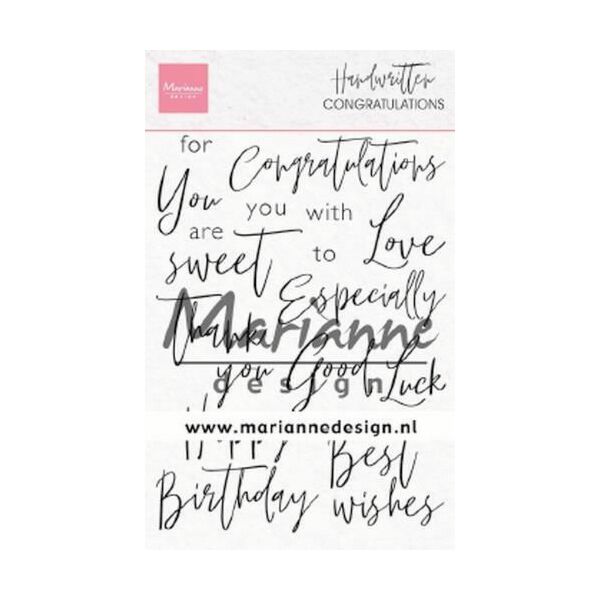 Marianne
DESIGN
Handwritten
CONGRATULATIONS
for Congratulations
You you with Love
are sweet to
Especially
Thank
Marianne
you Good Luck
design
www.mariannedesign.nl
Happy Best
Birthday wishes